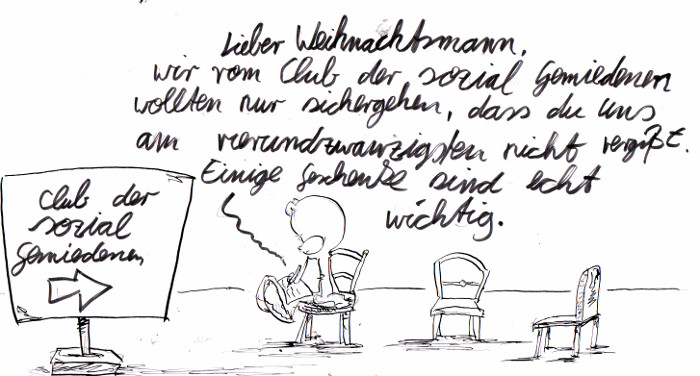 Lieber Weihnachtsmann,
wir vom Club der sozial Gemiedenen
wollten nur sichergehen, dass du uns
am vierundzwanzigsten nicht vergißt.
Einige Geschenke sind echt
wichtig.
Club der
sozial
Gemiedenen